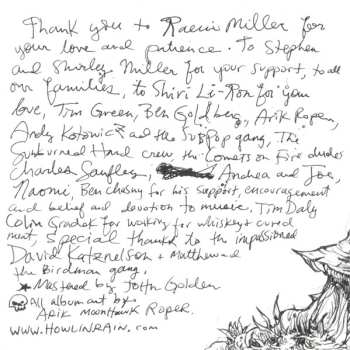 Thank you to Raeni Miller for
your love and patience. To Stephen
and Shirley Miller for your support, to all
our families, to Shiri Li-Ron for your
love, Tim Green, Ben Goldberg, Arik Roper,
Andy Kotowicz and the SubPop gang, The
Sunburned Hand crew the Comets on Fire dudes
Charles Saufley, Andrea and Joe,
Naomi, Ben Chasny for his support, encouragement
and belief and devotion to music, Tim Daly
Colin Gradok for working for whiskey & cured
meat, Special thanks to the impassioned
David Katznelson + Matthew and
the Birdman gang.
★ Mastered by John Golden
All album art by
Arik Moonhawk Roper.
www.HOWLINRAIN.com